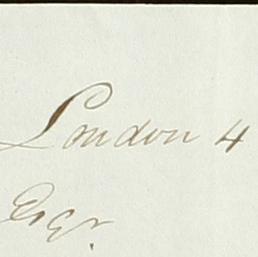 London 4
Esqr.